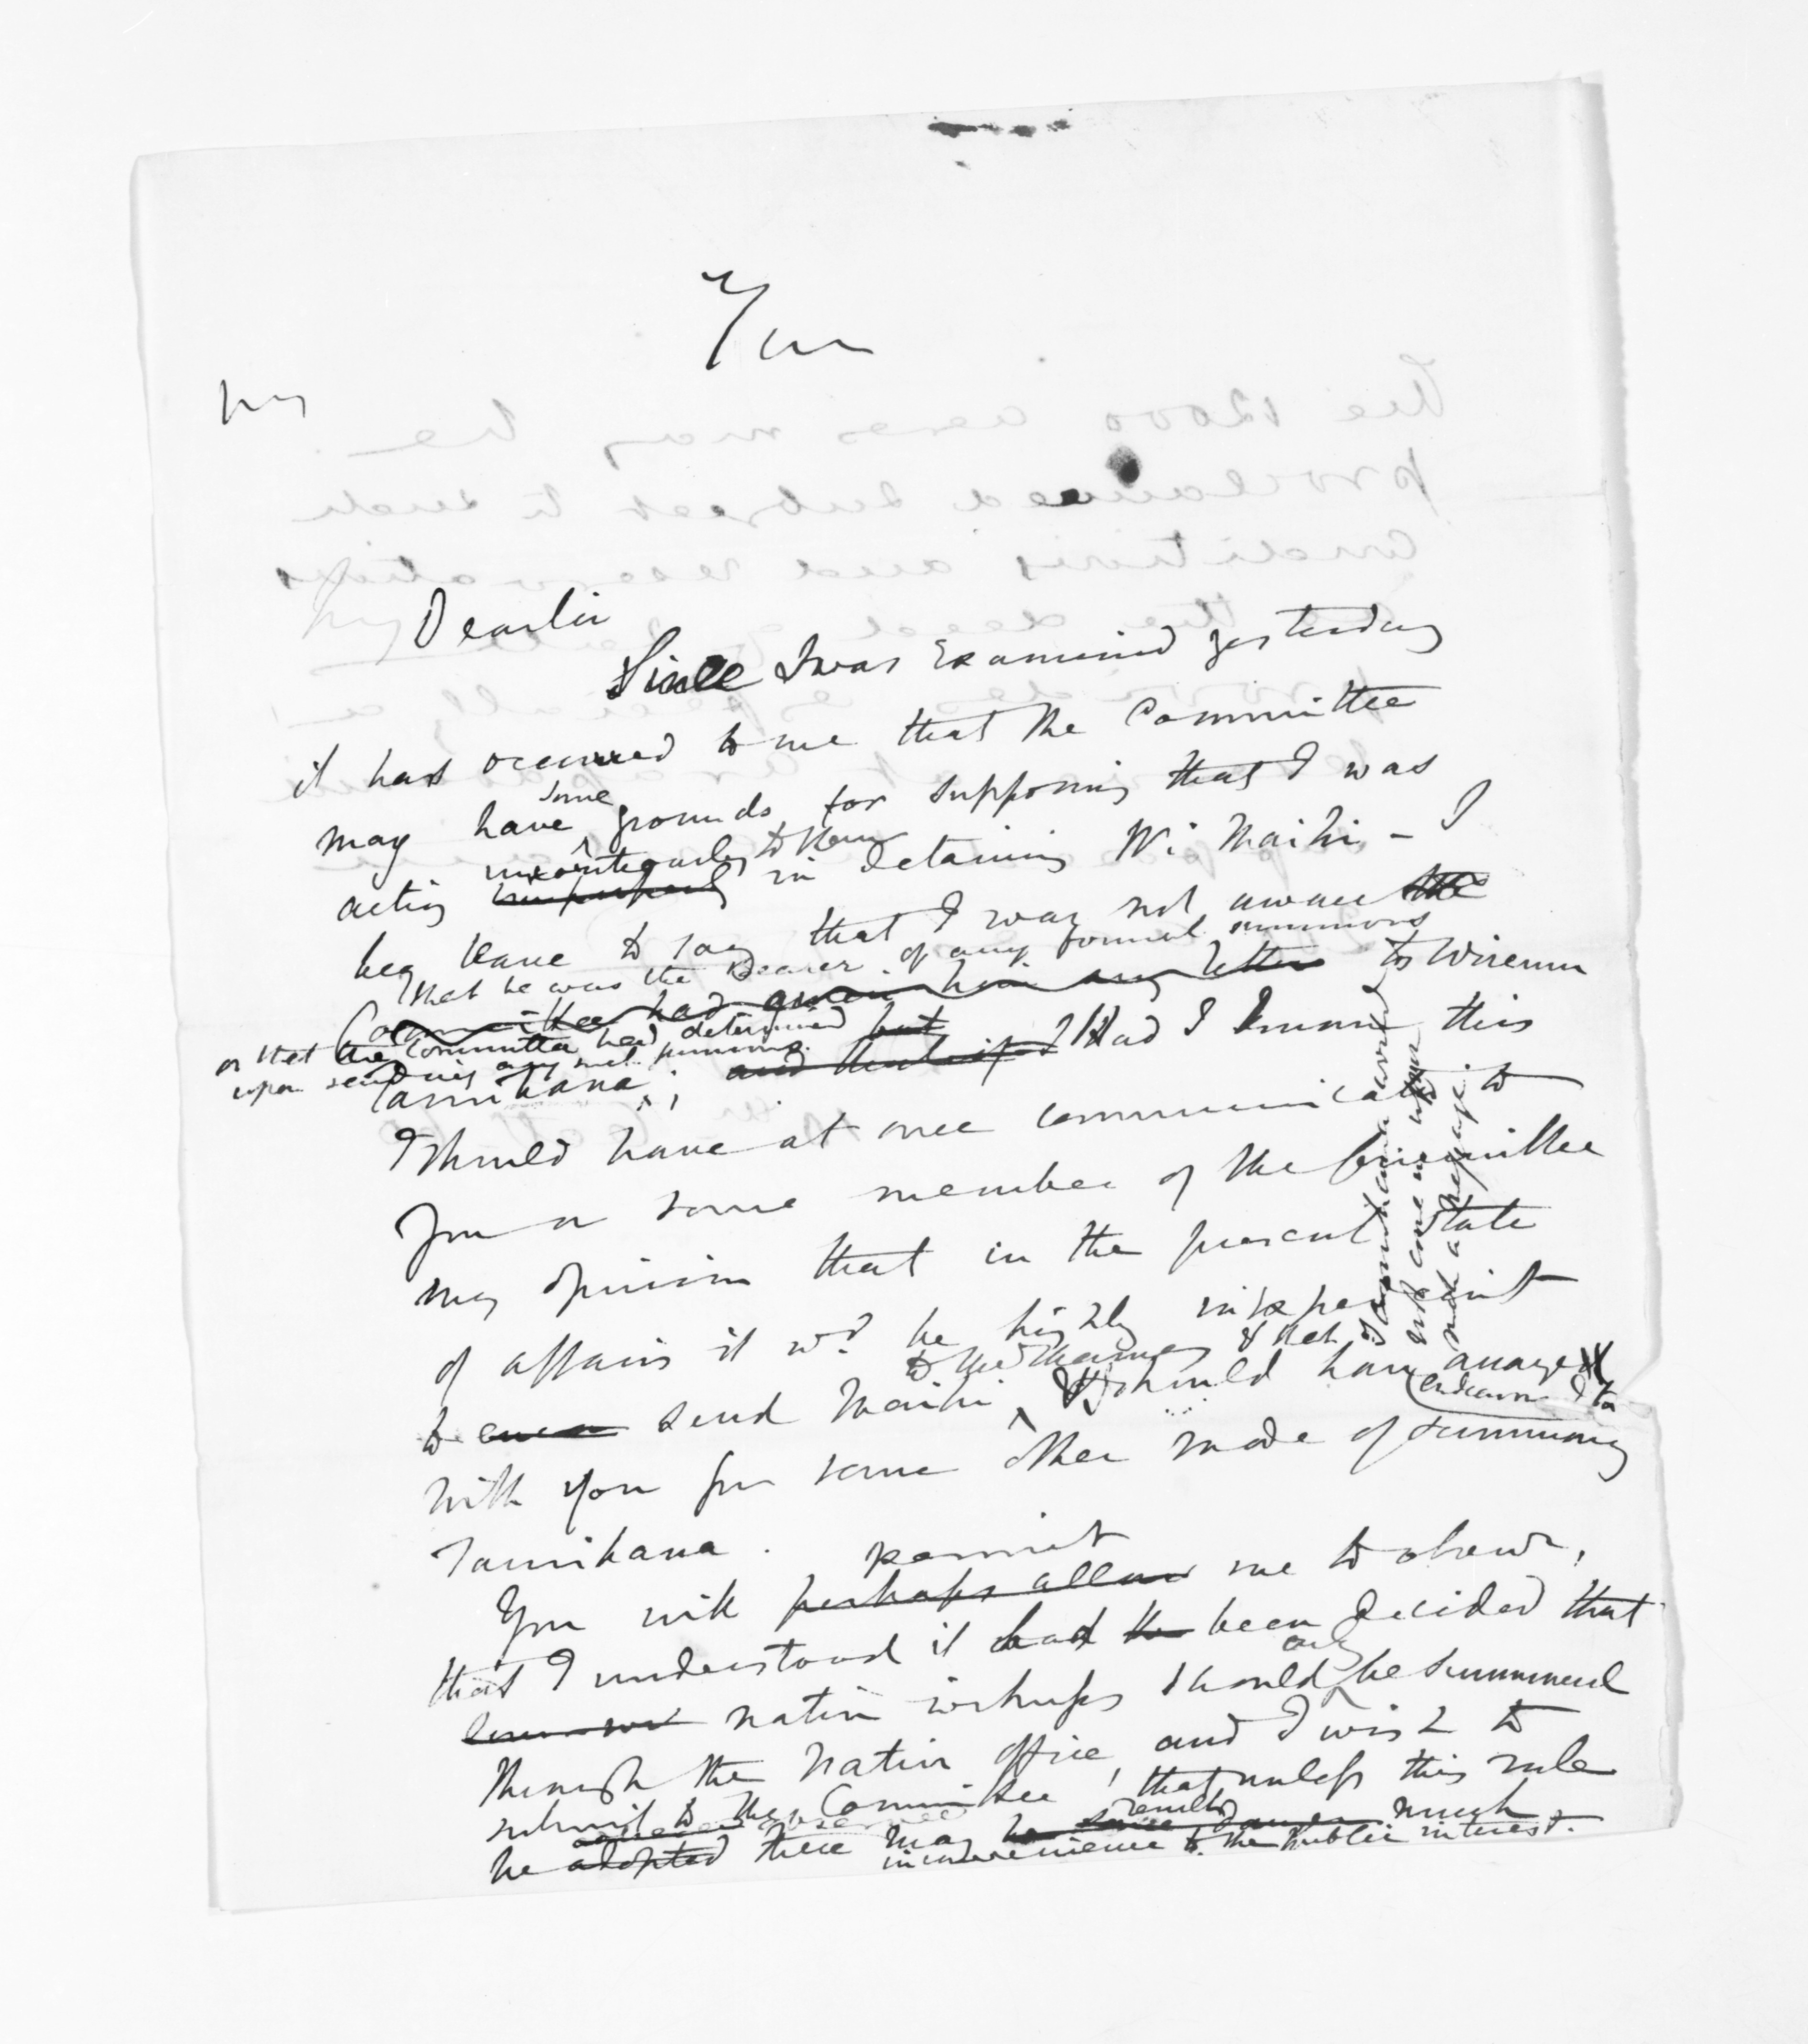 You
My
My Dear Sir
Since I was Examined yesterday
it has occurred to me that the Committee
may have some grounds for supposing that I was
acting uncourteously to them in detaining Wi Maihi - I
beg leave to say that I was not aware the
that he was the Bearer of any formal summons
Committee had given him any letter to Wiremu
or that the Committee had determined but
upon sending any such summons.
Tamihana; and that if I Had I known this
I should have at once communicated to
You or some member of the Committee
my opinion that in the present state
of affairs it wd. be highly inexpedient
to the Thames & that
to even send Maihi, & I should have arranged
endeavoured to
with you for some other mode of summoning
Tamihana.
permit
You will perhaps allow me to observe,
that I understood it had been decided that
only
native witnesses should be summoned
through the Native Office, and I wish to
submit to the Committee, that, unless this rule
be adopted there may result much
inconvenience to the Public interest.
Tamihana would
not come upon
such a message